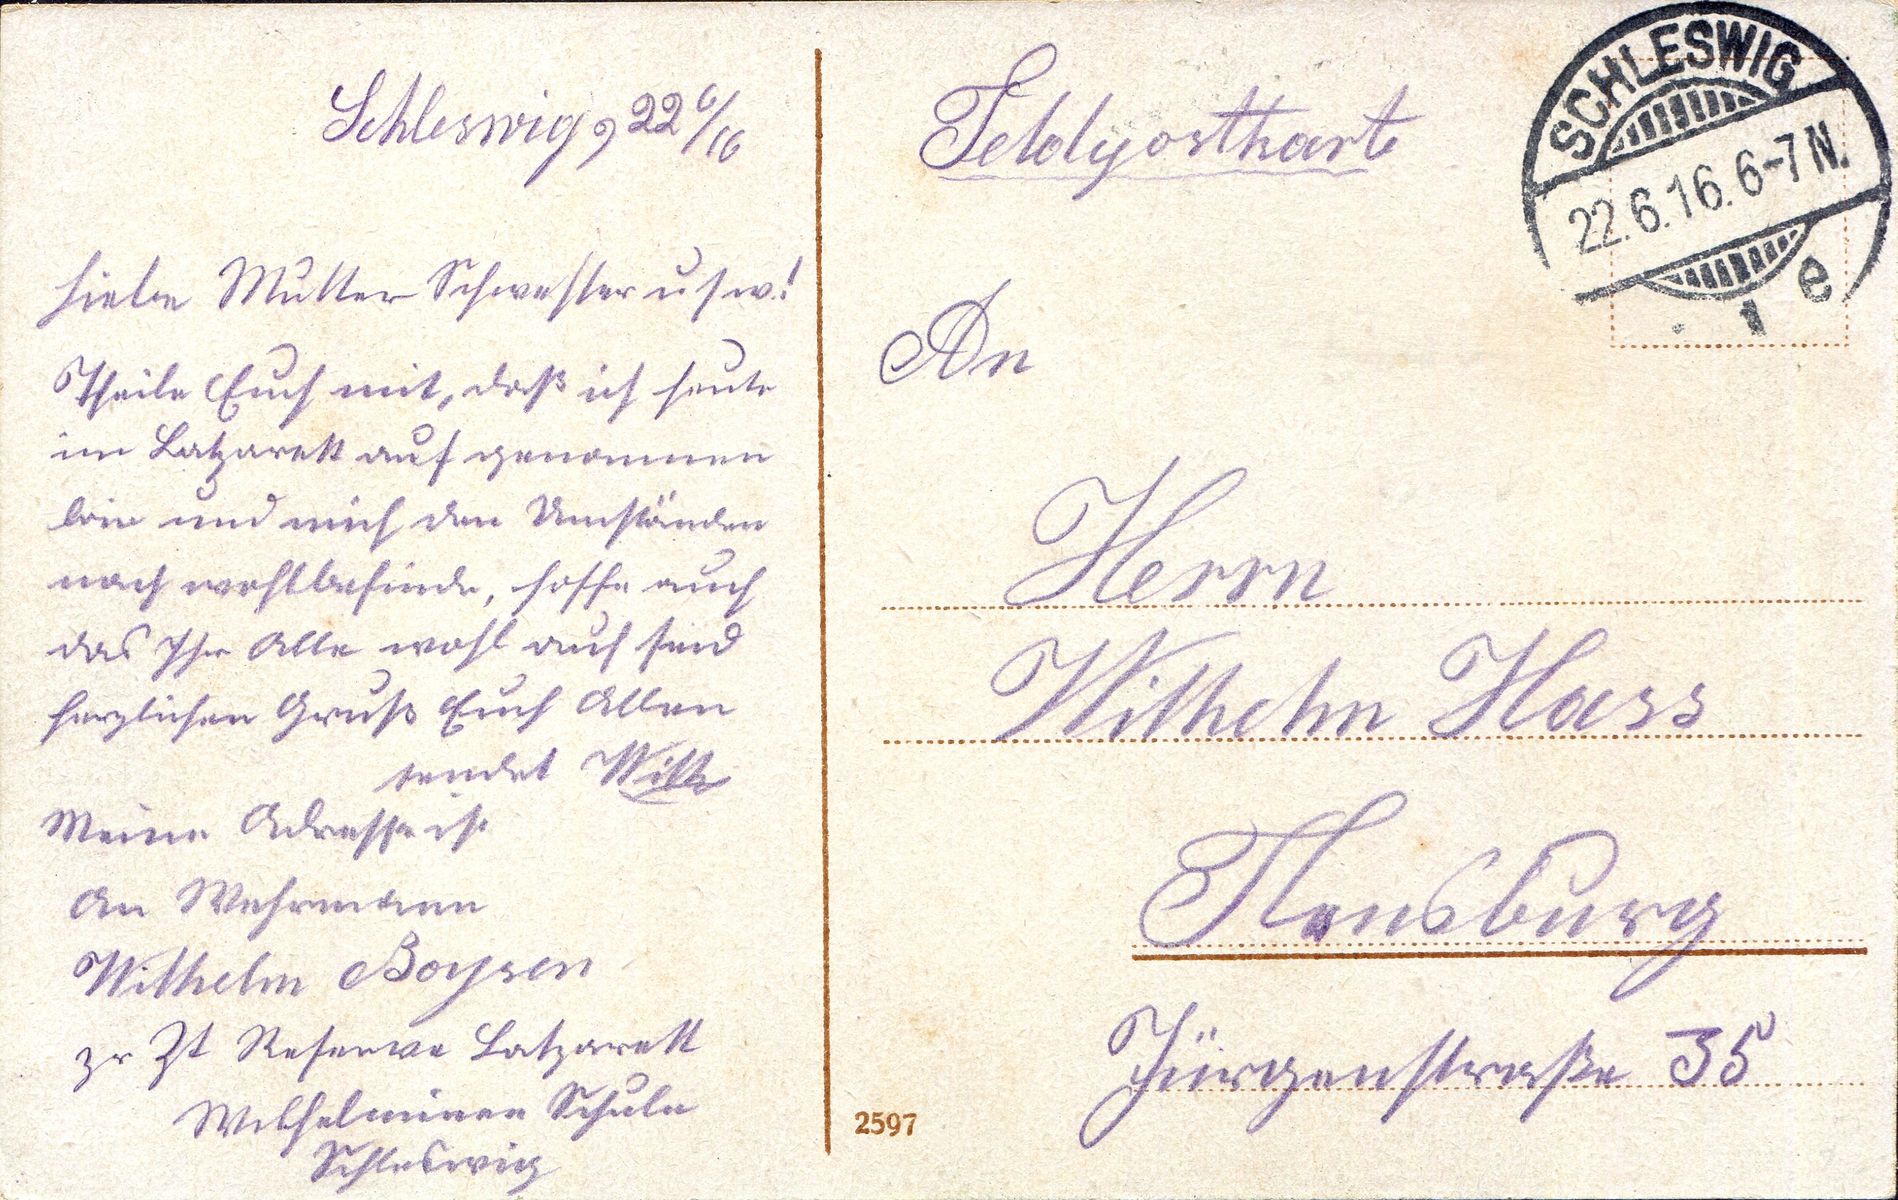 Schleswig, 22 6/16
Liebe Mutter Schwester u s w.!
Theile Euch mit, daß ich heute
im Latzarett auf genommen
bin und mich den Umständen
nach wohlbefinde, hoffe auch
das Ihr Alle wohl auf seid
herzlichen Gruß Euch Allen
sendet Willi
Meine Adresse ist
An Wehrmann
Wilhelm Boysen
zr Zt Reserve Latzarett
Wilhelminen Schule
Schleswig
Feldpostkarte
An
Herrn
Wilhelm Hass
Flensburg
Jürgenstraße 35
SCHLESWIG
22.6.16. 6-7 N.
1 e
2597